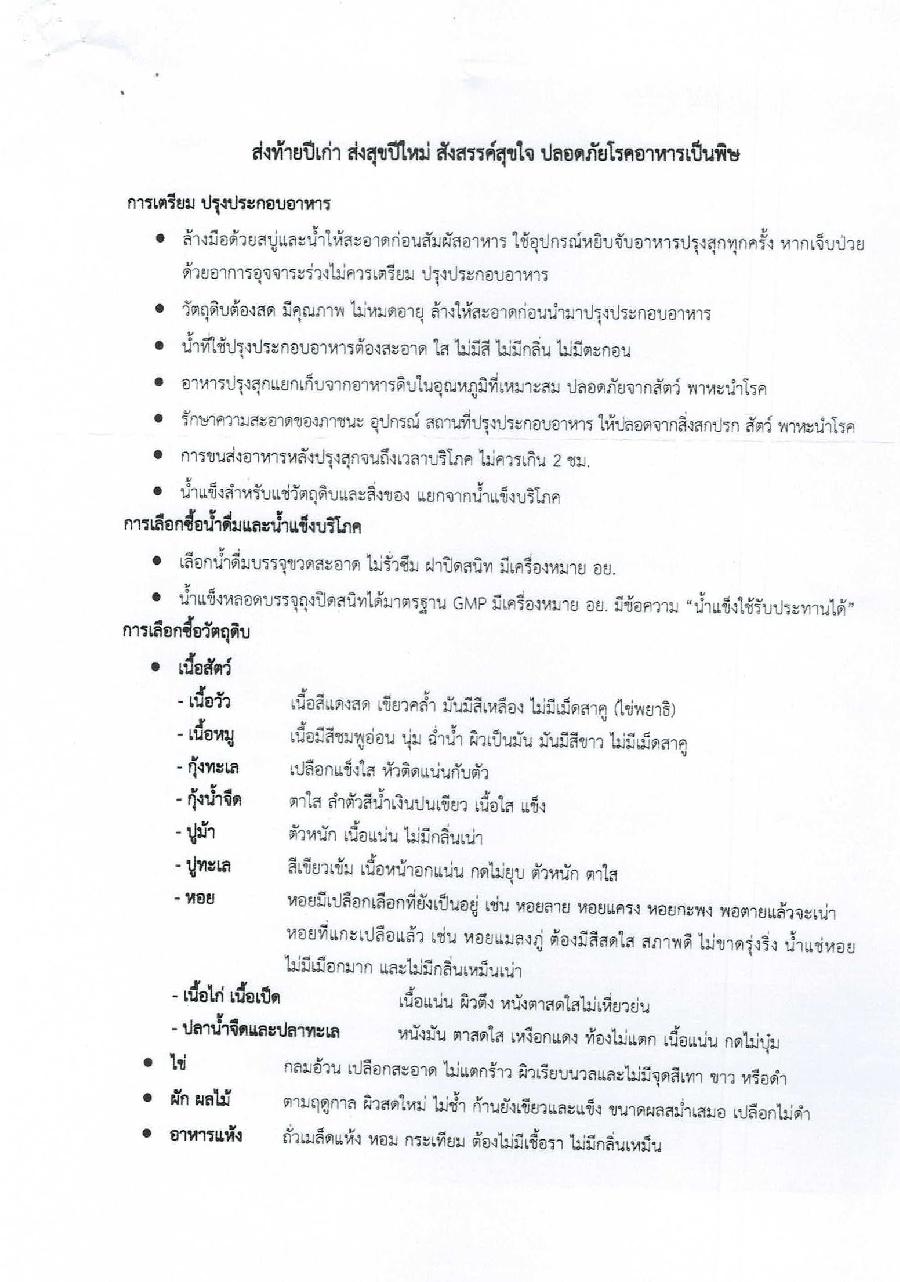 ส่งท้ายปีเก่า ส่งสุขปีใหม่ สังสรรค์สุขใจ ปลอดภัยโรคอาหารเป็นพิษ
การเตรียม ปรุงประกอบอาหาร
● ล้างมือด้วยสบู่และน้ำให้สะอาดก่อนสัมผัสอาหาร ใช้อุปกรณ์หยิบจับอาหารปรุงสุกทุกครั้ง หากเจ็บป่วย
ด้วยอาการอุจจาระร่วงไม่ควรเตรียม ปรุงประกอบอาหาร
● วัตถุดิบต้องสด มีคุณภาพ ไม่หมดอายุ ล้างให้สะอาดก่อนนำมาปรุงประกอบอาหาร
● น้ำที่ใช้ปรุงประกอบอาหารต้องสะอาด ใส ไม่มีสี ไม่มีกลิ่น ไม่มีตะกอน
● อาหารปรุงสุกแยกเก็บจากอาหารดิบในอุณหภูมิที่เหมาะสม ปลอดภัยจากสัตว์ พาหะนำโรค
● รักษาความสะอาดของภาชนะ อุปกรณ์ สถานที่ปรุงประกอบอาหาร ให้ปลอดจากสิ่งสกปรก สัตว์ พาหะนำโรค
● การขนส่งอาหารหลังปรุงสุกจนถึงเวลาบริโภค ไม่ควรเกิน 2 ชม.
● น้ำแข็งสำหรับแช่วัตถุดิบและสิ่งของ แยกจากน้ำแข็งบริโภค
การเลือกซื้อน้ำดื่มและน้ำแข็งบริโภค
● เลือกน้ำดื่มบรรจุขวดสะอาด ไม่รั่วซึม ฝาปิดสนิท มีเครื่องหมาย อย.
● น้ำแข็งหลอดบรรจุถุงปิดสนิทได้มาตรฐาน GMP มีเครื่องหมาย อย. มีข้อความ “น้ำแข็งใช้รับประทานได้”
การเลือกซื้อวัตถุดิบ
● เนื้อสัตว์
- เนื้อวัว เนื้อสีแดงสด เขียวคล้ำ มันมีสีเหลือง ไม่มีเม็ดสาคู (ไข่พยาธิ)
- เนื้อหมู เนื้อมีสีชมพูอ่อน นุ่ม ฉ่ำน้ำ ผิวเป็นมัน มันมีสีขาว ไม่มีเม็ดสาคู
- กุ้งทะเล เปลือกแข็งใส หัวติดแน่นกับตัว
- กุ้งน้ำจืด ตาใส ลำตัวสีน้ำเงินปนเขียว เนื้อใส แข็ง
- ปูม้า ตัวหนัก เนื้อแน่น ไม่มีกลิ่นเน่า
- ปูทะเล สีเขียวเข้ม เนื้อหน้าอกแน่น กดไม่ยุบ ตัวหนัก ตาใส
- หอย หอยมีเปลือกเลือกที่ยังเป็นอยู่ เช่น หอยลาย หอยแครง หอยกะพง พอตายแล้วจะเน่า
หอยที่แกะเปลือแล้ว เช่น หอยแมลงภู่ ต้องมีสีสดใส สภาพดี ไม่ขาดรุ่งริ่ง น้ำแช่หอย
ไม่มีเมือกมาก และไม่มีกลิ่นเหม็นเน่า
- เนื้อไก่ เนื้อเป็ด เนื้อแน่น ผิวตึง หนังตาสดใสไม่เหี่ยวย่น
- ปลาน้ำจืดและปลาทะเล หนังมัน ตาสดใส เหงือกแดง ท้องไม่แตก เนื้อแน่น กดไม่บุ๋ม
● ไข่ กลมอ้วน เปลือกสะอาด ไม่แตกร้าว ผิวเรียบนวลและไม่มีจุดสีเทา ขาว หรือดำ
● ผัก ผลไม้ ตามฤดูกาล ผิวสดใหม่ ไม่ช้ำ ก้านยังเขียวและแข็ง ขนาดผลสม่ำเสมอ เปลือกไม่ดำ
● อาหารแห้ง ถั่วเมล็ดแห้ง หอม กระเทียม ต้องไม่มีเชื้อรา ไม่มีกลิ่นเหม็น